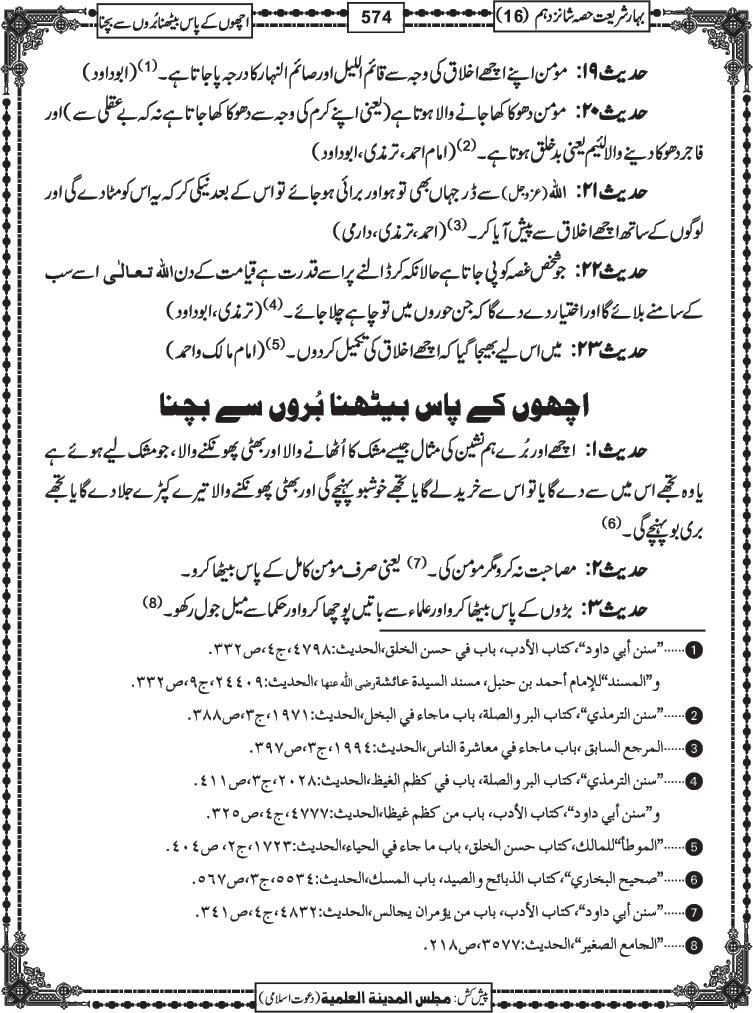 بہارِ شریعت حصہ شانزدہم (16)
574
اچھوں کے پاس بیٹھنا بُروں سے بچنا
حدیث ۱۹: مؤمن اپنے اچھے اخلاق کی وجہ سے قائم اللیل اور صائم النہار کا درجہ پا جاتا ہے۔(1) (ابوداود)
حدیث ۲۰: مومن دھوکا کھا جانے والا ہوتا ہے (یعنی اپنے کرم کی وجہ سے دھوکا کھا جاتا ہے نہ کہ بے عقلی سے) اور
فاجر دھوکا دینے والا لئیم یعنی بدخلق ہوتا ہے۔(2) (امام احمد، ترمذی، ابوداود)
حدیث ۲۱: اللہ (عزوجل) سے ڈر جہاں بھی تو ہو اور برائی ہو جائے تو اس کے بعد نیکی کر کہ یہ اس کو مٹا دے گی اور
لوگوں کے ساتھ اچھے اخلاق سے پیش آیا کر۔(3) (احمد، ترمذی، دارمی)
حدیث ۲۲: جو شخص غصہ کو پی جاتا ہے حالانکہ کر ڈالنے پر اسے قدرت ہے قیامت کے دن اللہ تعالٰی اسے سب
کے سامنے بلائے گا اور اختیار دے دے گا کہ جن حوروں میں تو چاہے چلا جائے۔(4) (ترمذی، ابوداود)
حدیث ۲۳: میں اس لیے بھیجا گیا کہ اچھے اخلاق کی تکمیل کر دوں۔(5) (امام مالک و احمد)
اچھوں کے پاس بیٹھنا بُروں سے بچنا
حدیث ۱: اچھے اور بُرے ہم نشین کی مثال جیسے مشک کا اُٹھانے والا اور بھٹی پھونکنے والا، جو مشک لیے ہوئے ہے
یا وہ تجھے اس میں سے دے گا یا تو اس سے خرید لے گا یا تجھے خوشبو پہنچے گی اور بھٹی پھونکنے والا تیرے کپڑے جلا دے گا یا تجھے
بری بو پہنچے گی۔(6)
حدیث ۲: مصاحبت نہ کرو مگر مومن کی۔(7) یعنی صرف مومن کامل کے پاس بیٹھا کرو۔
حدیث ۳: بڑوں کے پاس بیٹھا کرو اور علماء سے باتیں پوچھا کرو اور حکما سے میل جول رکھو۔(8)
1......"سنن أبي داود"، کتاب الأدب، باب في حسن الخلق، الحدیث:۴۷۹۸، ج۴، ص۳۳۲.
و"المسند" للإمام أحمد بن حنبل، مسند السیدة عائشة رضی اللہ عنہا، الحدیث:۲۴۴۰۹، ج۹، ص۳۳۲.
2......"سنن الترمذي"، کتاب البر والصلة، باب ماجاء في البخل، الحدیث:۱۹۷۱، ج۳، ص۳۸۸.
3......المرجع السابق، باب ماجاء في معاشرة الناس، الحدیث:۱۹۹۴، ج۳، ص۳۹۷.
4......"سنن الترمذي"، کتاب البر والصلة، باب في کظم الغیظ، الحدیث:۲۰۲۸، ج۳، ص۴۱۱.
و"سنن أبي داود"، کتاب الأدب، باب من کظم غیظا، الحدیث:۴۷۷۷، ج۴، ص۳۲۵.
5......"الموطأ" للمالك، کتاب حسن الخلق، باب ما جاء في الحیاء، الحدیث:۱۷۲۳، ج۲، ص۴۰۴.
6......"صحیح البخاري"، کتاب الذبائح والصید، باب المسك، الحدیث:۵۵۳۴، ج۳، ص۵۶۷.
7......"سنن أبي داود"، کتاب الأدب، باب من یؤمر ان یجالس، الحدیث:۴۸۳۲، ج۴، ص۳۴۱.
8......"الجامع الصغیر"، الحدیث:۳۵۷۷، ص۲۱۸.
پیش کش: مجلس المدینة العلمیة (دعوت اسلامی)